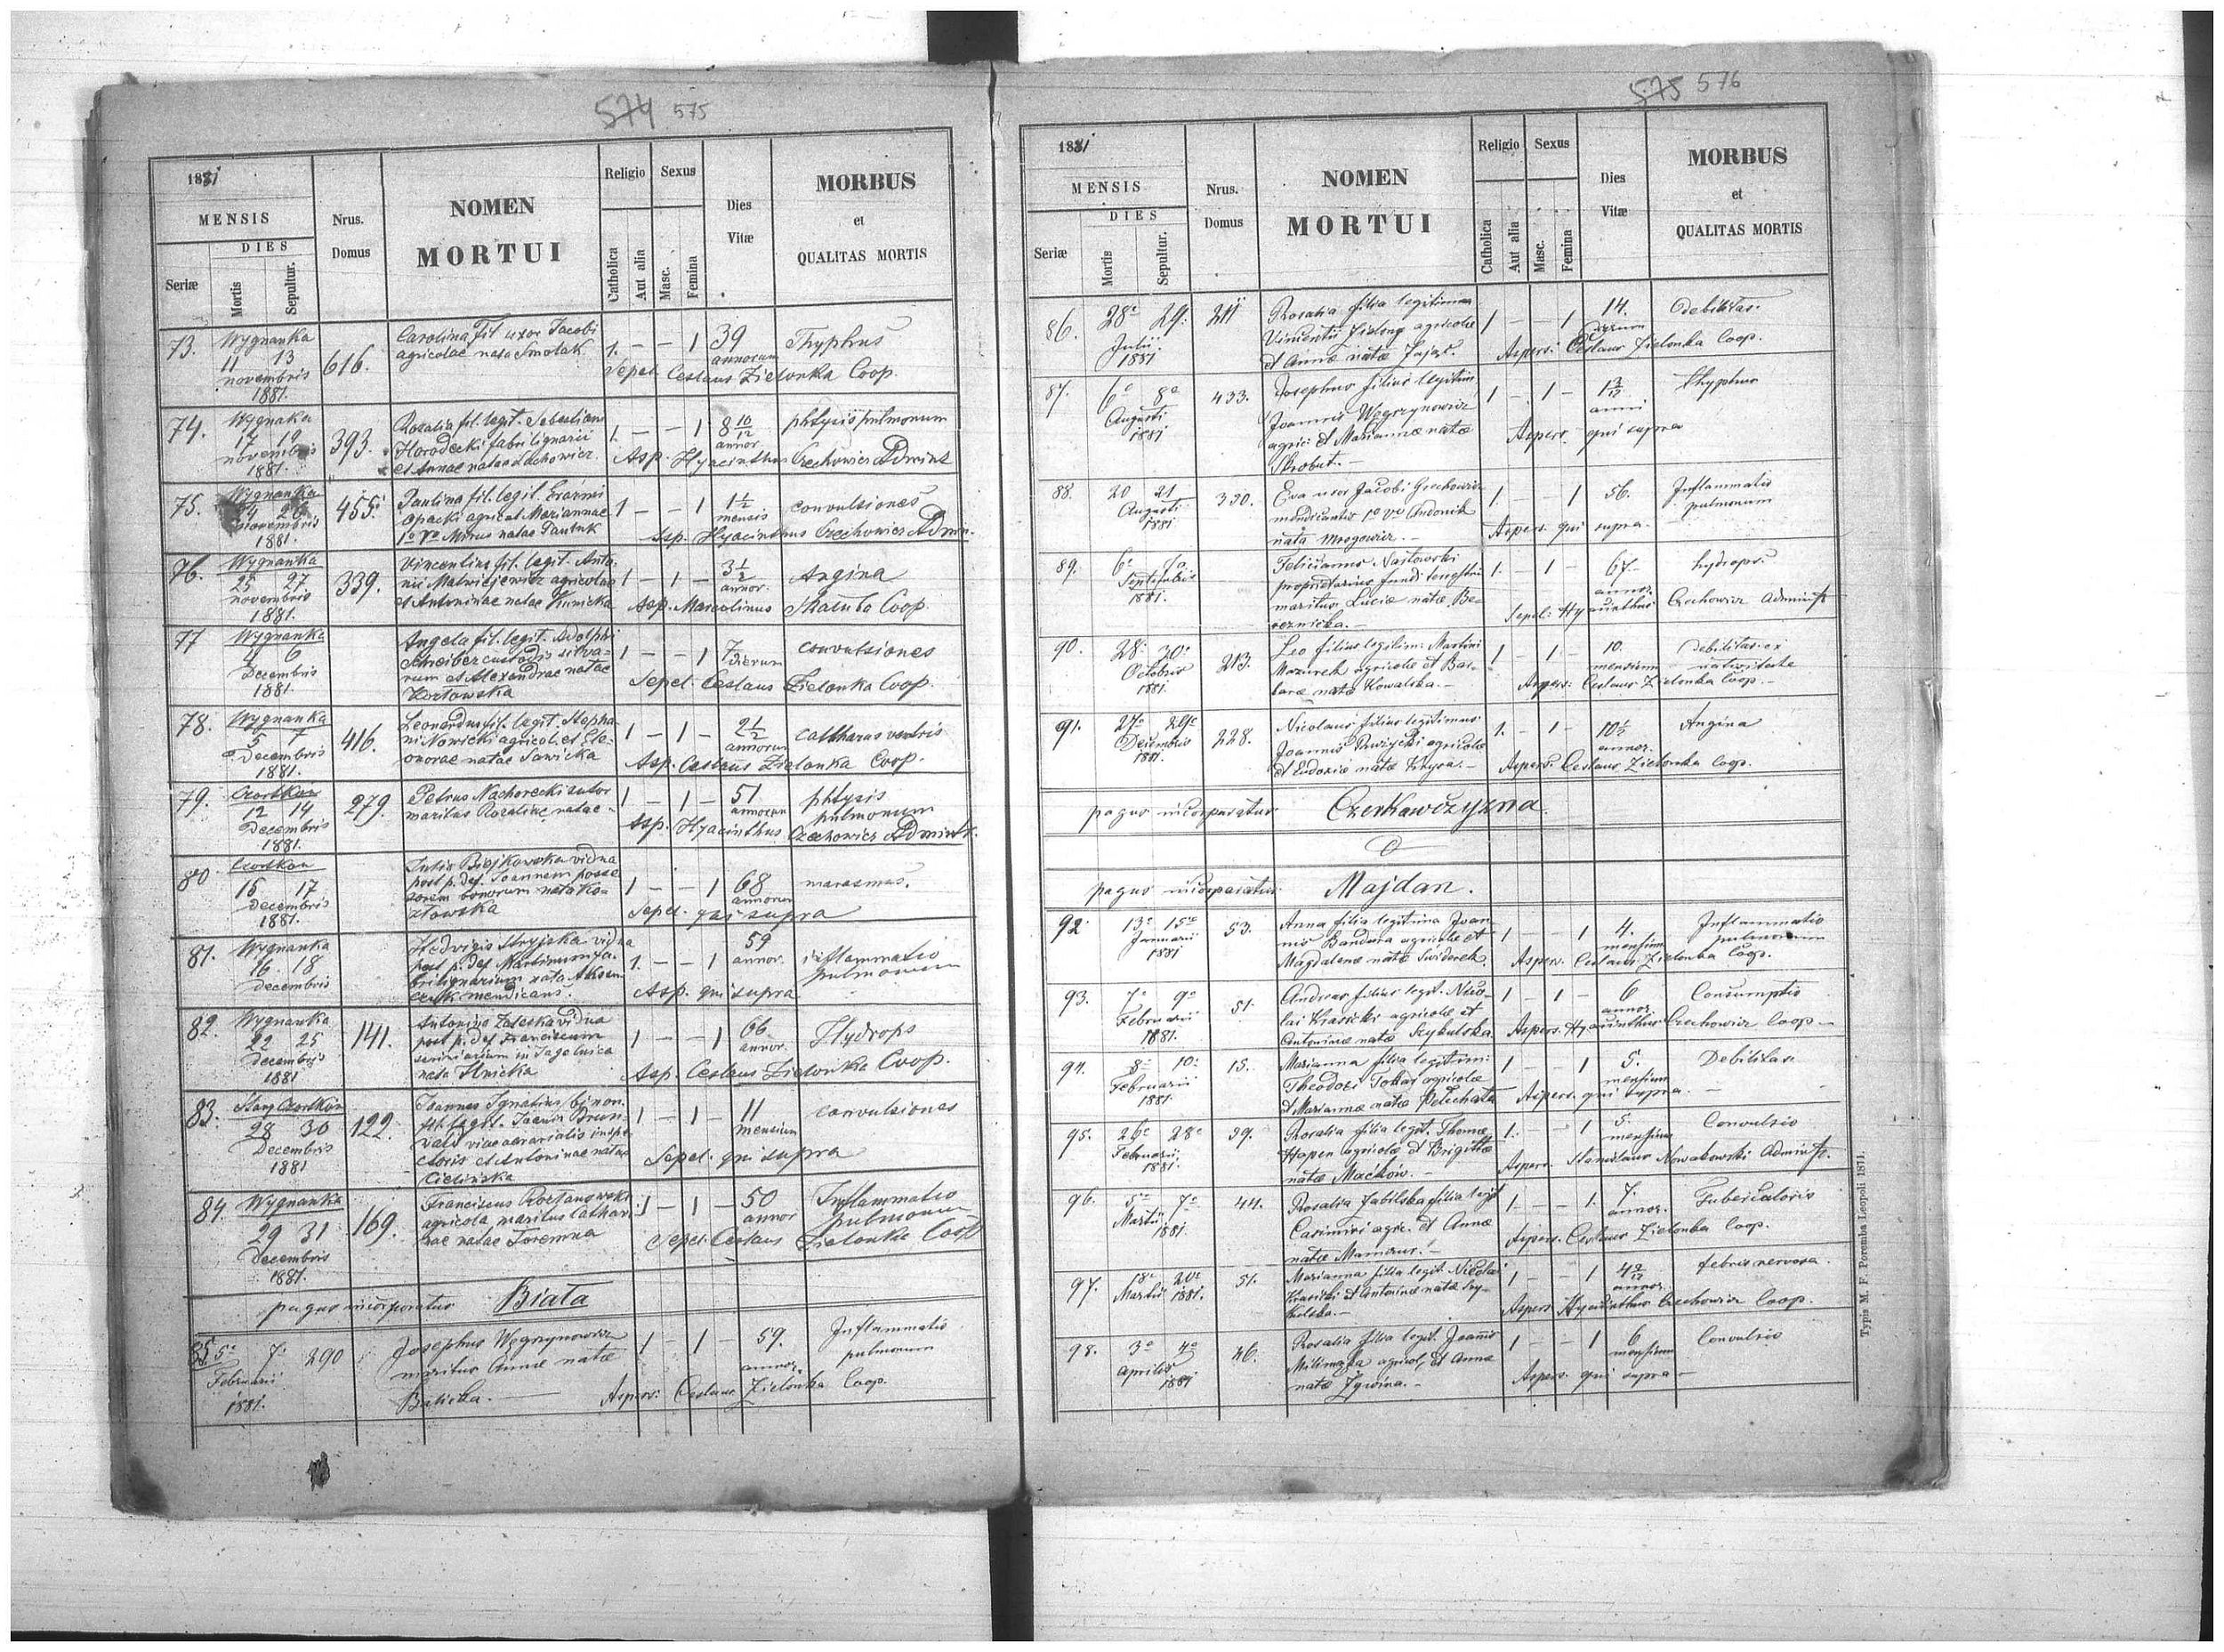 574 575
1881
MENSIS
DIES
Seriæ
Mortis
Sepultur.
Nrus.
Domus
NOMEN
MORTUI
Religio
Sexus
Catholica
Aut alia
Masc.
Femina
Dies
Vitæ
MORBUS
et
QUALITAS MORTIS
73. Wygnanka
11 13
novembris
1881.
616.
Carolina Fil uxor Jacobi
agricolae nata Smolak
1. — — 1 39
annorum
Thyphus
Sepel. Ceslaus Zielonka Coop.
74. Wygnanka
17 19
novembris
1881.
393.
Rozalia fil. legit. Sebastiani
Horodecki fabri lignarii
et Annae natae Lachowicz.
1. — — 1 8 10/12
annor.
phtysis pulmonum
Asp. Hyacinthus Czechowicz Admint
75. Wygnanka
24 26
novembris
1881.
455.
Paulina fil. legit. Erasmi
Opacki agricol. Mariannae
natae Pauluk
1 — — 1 1 1/2
mensis
convulsiones
Asp. Hyacinthus Czechowicz Admin.
76. Wygnanka
25 27
novembris
1881.
339.
Vincentius fil. legit. Anto-
nii Matwijewicz agricolae
et Antoninae natae Kunicka
1 — 1 — 3 1/2
annor.
Angina
Asp. Marcolinus Skałuba Coop.
77 Wygnanka
6
Decembris
1881.
Angela fil. legit. Adolphi
Schreiber custodis silva-
rum et Alexandrae natae
1 — — 1 7
dierum
convulsiones
Sepel. Ceslaus Zielonka Coop.
78. Wygnanka
5 7
Decembris
1881.
416.
Leonardus fil. legit. Stepha-
ni Nowicki agricol. et Ele-
onorae natae Sawicka
1 — 1 — 2 1/2
annorum
catharus ventris
Asp. Ceslaus Zielonka Coop.
79. Czortkow
12 14
Decembris
1881.
279.
Petrus Nachorecki sutor
maritus Rozaliae natae -
1 — 1 — 51
annorum
phtysis
pulmonum
Asp. Hyacinthus Czechowicz Admintr.
80. Czortkow
15 17
Decembris
1881.
Julia vidua
post p. def. Joannem posse-
sorem bonorum nata Ko-
złowska
1 — — 1 68
annorum
marasmus.
Sepel. qui supra
81. Wygnanka
16 18
Decembris
Hedvigis Stryjska vidua
post p. def. Martinum fa-
bri lignarium nata
mendicans.
1. — — 1 59
annor.
inflammatio
pulmonum
Asp. qui supra
82. Wygnanka
22 25
Decembris
1881
141.
Antonina Zaleska vidua
post p. def. Franciscum
in Jagolnica
nata Ilnicka
1 — — 1 66
annor.
Hydrops
Asp. Ceslaus Zielonka Coop.
83. Stary Czortkow
28 30
Decembris
1881
122.
Joannes Ignatius bi non.
fil. legit. Joannis
viae aerarialis inspe-
ctoris et Antoninae natae
Cielińska
1 — 1 — 11
mensium
convulsiones
Sepel. qui supra
84. Wygnanka
29 31
Decembris
1881.
169.
Franciscus
agricola, maritus Cathar.
nae natae Toremna
1 — 1 — 50
annor
Inflammatio
pulmonum
Sepel. Ceslaus Zielonka Coop
pagus incorporatus Biała
85. 5a 7.
Februarii
1881.
290
Josephus Węgrzynowicz
maritus Annae natae
Balicka. —
1 — 1 — 59.
annor.
Inflammatio
pulmonum
Aspers: Ceslaus Zielonka Coop.
575 576
1881
MENSIS
DIES
Seriæ
Mortis
Sepultur.
Nrus.
Domus
NOMEN
MORTUI
Religio
Sexus
Catholica
Aut alia
Masc.
Femina
Dies
Vitæ
MORBUS
et
QUALITAS MORTIS
86. 28a 29.
Julii
1881
211
Rosalia filia legitima
Vincentii Zielony agricolae
et Annae natae Zając.
1 — — 1 14.
dierum
Debilitas.
Aspers: Ceslaus Zielonka Coop.
87. 6a 8a
Augusti
1881
433.
Josephus filius legitim.
Joannis Węgrzynowicz
agric: et Mariannae natae
Skrobut. —
1 — 1 — 1 3/12
anni
thyphus
Aspers. qui supra
88. 20 21
Augusti
1881
330.
Eva uxor Jacobi Grechowicz
mendicantis
nata Mrogowicz. —
1. — 1 56.
Inflammatio
pulmonum
Aspers. qui supra —
89. 6a 7a
Septembris
1881.
Felicianus Nastowski
proprietarius fundi
maritus Luciae natae Be-
reznicka. —
1. — 1 — 67.
annor.
hydrops.
Sepel: Hyacinthus Czechowicz Administr
90. 28a 30a
Octobris
1881.
213.
Leo filius legitim: Martini
Mazurek agricolae et Bar-
barae natae Kowalska. —
1 — 1 — 10.
mensium
Debilitas ex
nativitate
Aspers: Ceslaus Zielonka Coop. —
91. 27a 29a
Decembris
1881.
228.
Nicolaus filius legitimus
Joannis Ruzycki agricolae
et Eudoxiae natae
1. — 1 — 10 1/2
annor.
Angina
Aspers. Ceslaus Zielonka Coop.
pagus incorporatus Czerkawszyzna.
pagus incorporatus. Majdan.
92. 13a 15a
Januarii
1881
53.
Anna filia legitima Joan-
nis Bandura agricolae et
Magdalenae natae Swiderek.
1 — — 1 4.
mensium
Inflammatio
pulmonum
Aspers. Ceslaus Zielonka Coop.
93. 7a 9a
Februarii
1881.
51.
Andreas filius legit. Nico-
lai Krasicki agricolae et
Antoninae natae Szykulska.
1 — 1 — 6
annor.
Consumptio
Aspers. Hyacinthus Czechowicz Coop —
94. 8a 10a
Februarii
1881.
15.
Marianna filia legitim:
Theodori Tokar agricolae
et Mariannae natae Pelechata
1 — — 1 5.
mensium
Debilitas
Aspers. qui supra. —
95. 26a 28a
Februarii
1881.
39.
Rosalia filia legit. Thomae
Hapen agricolae et Brigittae
natae Maćków. —
1. — — 1 5.
mensium
Convulsio
Aspers. Stanislaus Nowakowski Administr.
96. 5a 7a
Martii
1881.
44.
Rosalia Jabilska filia legit
Casimiri agric. et Annae
natae Mamrus. —
1. — — 1. 7.
annor.
Tuberculosis
Aspers. Ceslaus Zielonka Coop.
97. 18a 20a
Martii 1881.
51.
Marianna filia legit. Nicolai
Krasicki et Antoninae natae Szy-
kulska. —
1 — — 1 4 2/12
annor.
febris nervosa.
Aspers. Hyacinthus Czechowicz Coop.
98. 3a 4a
Aprilis
1881
46.
Rosalia filia legit. Joannis
agricol. et Annae
natae Zywina. —
1 — — 1 6
mensium
Convulsio
Aspers. qui supra —
Typis M. F. Poremba Leopoli 1871.